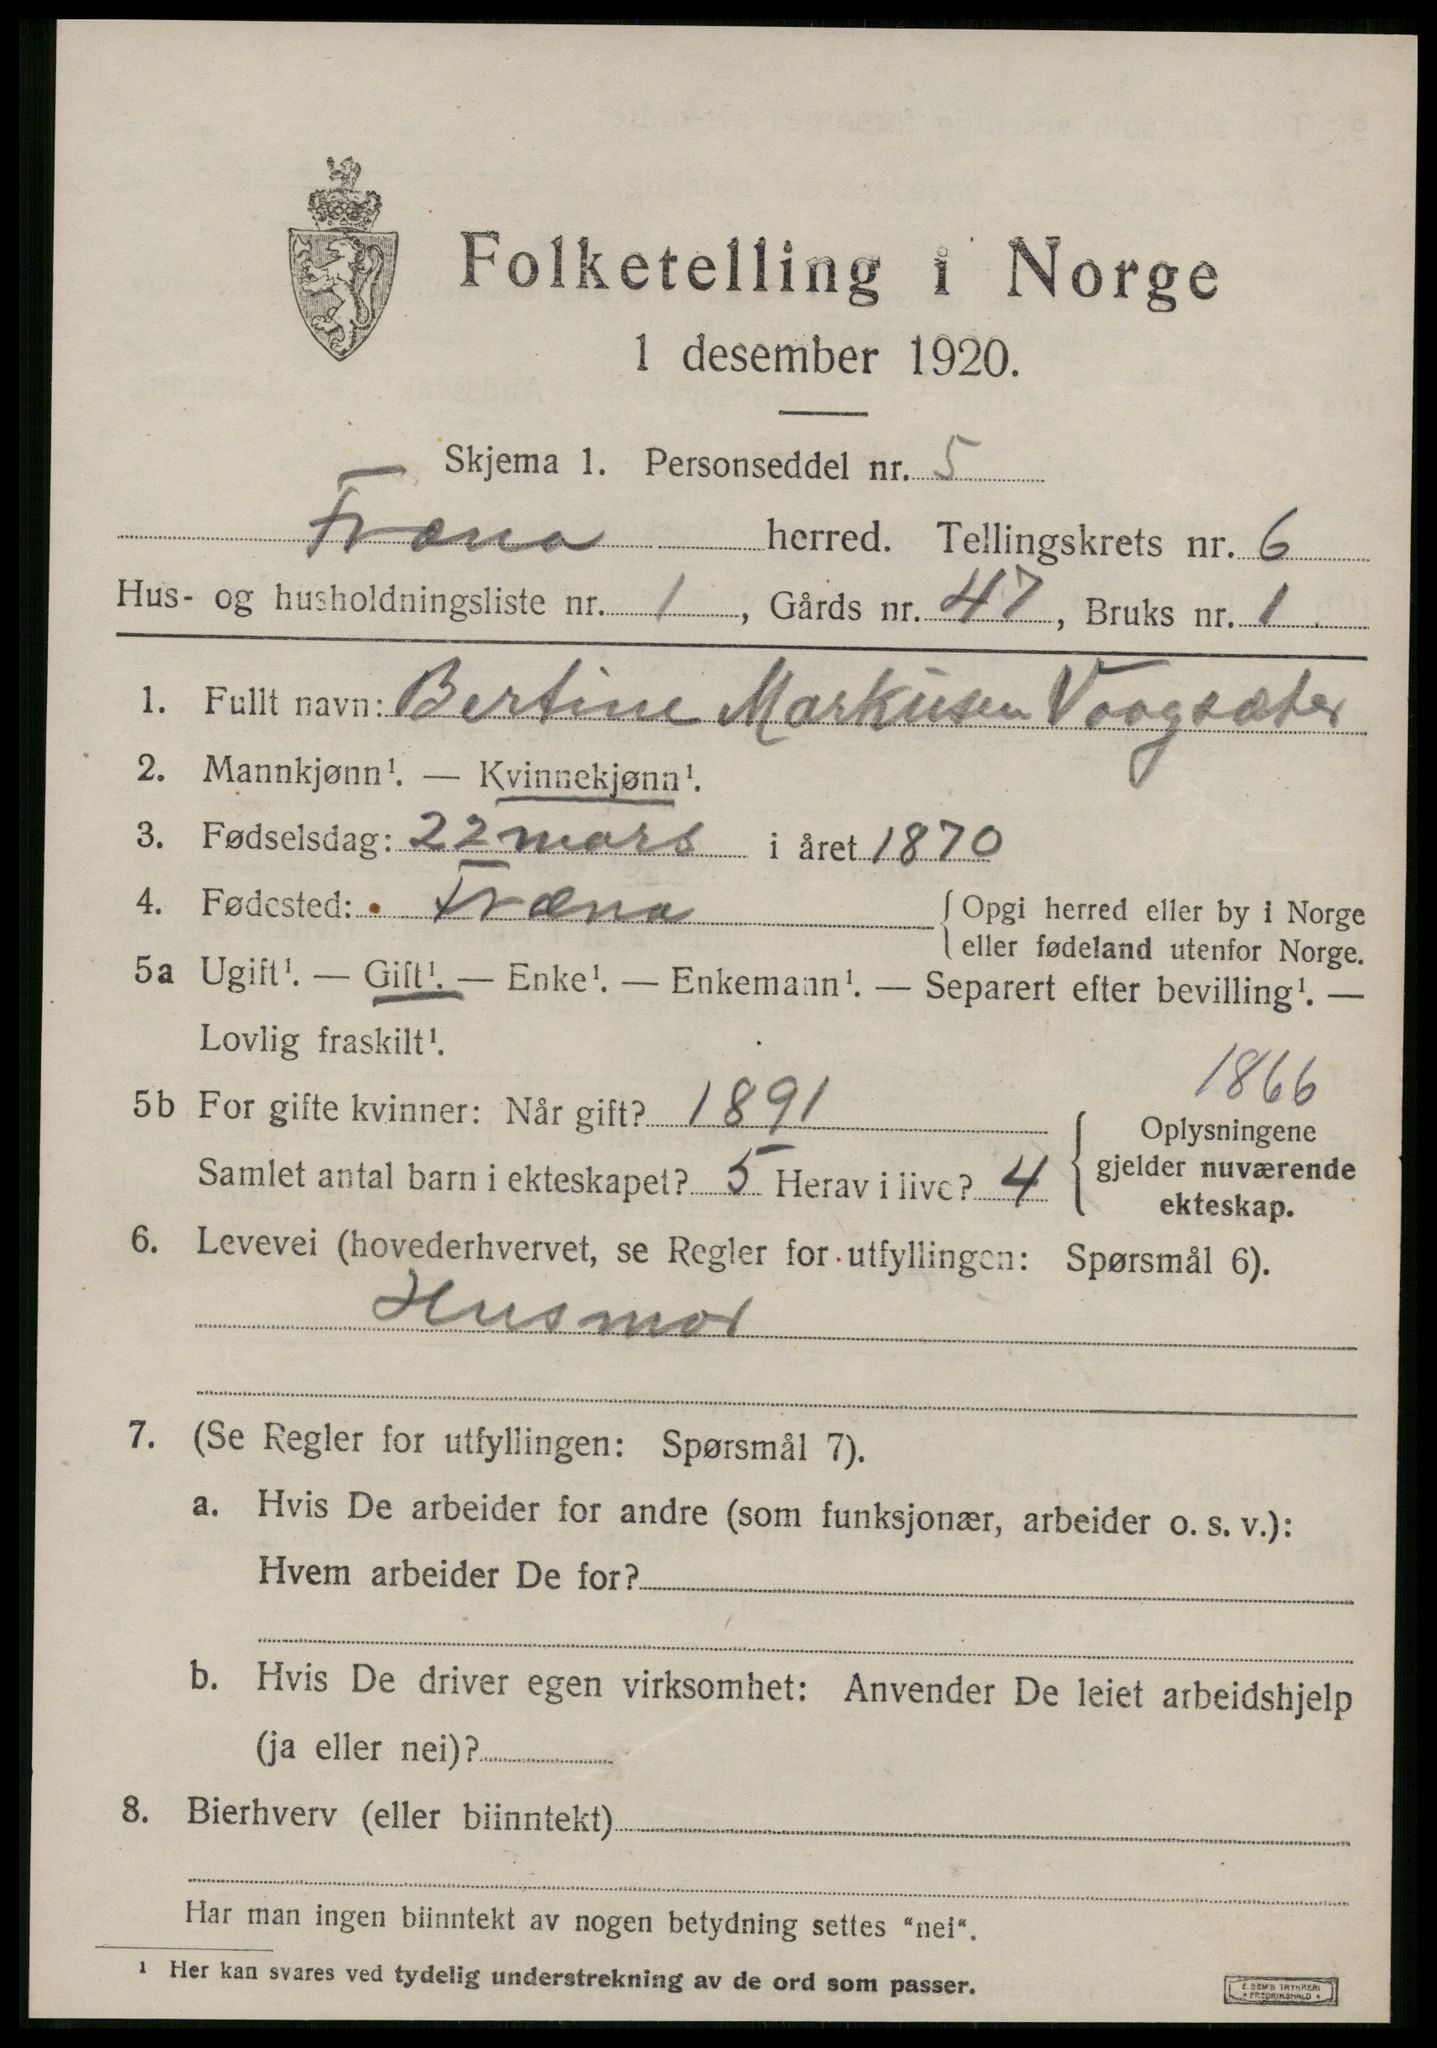 Folketelling i Norge
1 desember 1920.
Skjema 1. Personseddel nr. 5
Fræna herred. Tellingskrets nr. 6
Hus- og husholdningsliste nr. 1, Gårds nr. 47, Bruks nr. 1
1. Fullt navn: Bertine Markusen Vaagsæter
2. Mannkjønn¹. — Kvinnekjønn¹.
3. Fødselsdag: 22 mars i året 1870
4. Fødested: Fræna {Opgi herred eller by i Norge
eller fødeland utenfor Norge.
5a Ugift¹. — Gift¹. — Enke¹. — Enkemann¹. — Separert efter bevilling¹. —
Lovlig fraskilt¹.
1866
5b For gifte kvinner: Når gift? 1891
Samlet antal barn i ekteskapet? 5 Herav i live? 4
{Oplysningene
gjelder nuværende
ekteskap.
6. Levevei (hovederhvervet, se Regler for utfyllingen: Spørsmål 6).
Husmor
7. (Se Regler for utfyllingen: Spørsmål 7).
a. Hvis De arbeider for andre (som funksjonær, arbeider o. s. v.):
Hvem arbeider De for?
b. Hvis De driver egen virksomhet: Anvender De leiet arbeidshjelp
(ja eller nei)?
8. Bierhverv (eller biinntekt)
Har man ingen biinntekt av nogen betydning settes "nei".
¹ Her kan svares ved tydelig understrekning av de ord som passer.
E SEM'S TRYKKERI
* FREDRIKSHALD *